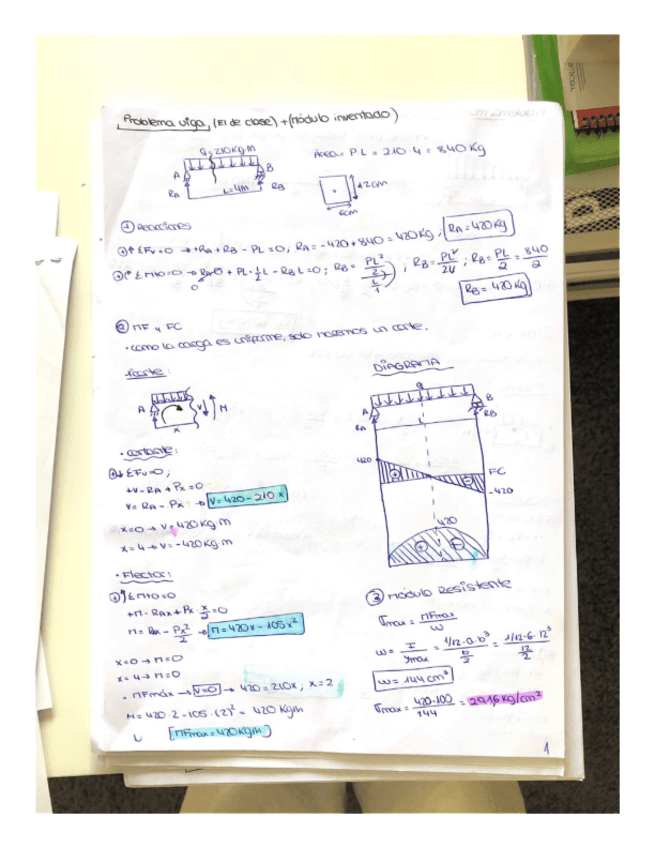 Problema viga, (El de clase) + (Módulo inventado)
q=210Kg·m
A B
RA L=4m RB
Area = P·L = 210·4 = 840 Kg
12cm
6cm
① Reacciones
⊕↑ ΣFv=0 → +RA + RB - PL = 0; RA = -420+840 = 420Kg; RA=420Kg
ΣMto=0 → RA·0 + PL·L/2 - RB·L=0; RB = (PL²/2)/(L/1); RB = PL²/2L; RB = PL/2 = 840/2
0
RB = 420 Kg
② MF y FC
· como la carga es uniforme, solo haremos un corte.
1corte:
A V M
x
· cortante:
⊕↓ ΣFv=0;
+V-RA+Px=0
V = RA - Px → V=420-210x
x=0 → V=420Kg·m
x=4 → V=-420Kg·m
· Flector:
ΣMto=0
+M-RAx+Px·x/2=0
M= RAx - Px²/2 → M=420x-105x²
x=0 → M=0
x=4 → M=0
- MFmáx → V=0 → 420=210x; x=2
M=420·2-105·(2)² = 420 Kgm
MFmax=420Kgm
DIAGRAMA
q
A B
RA L RB
420
⊕ ⊖ FC
-420
420
⊕ ⊖
③ Módulo Resistente
σmax = MFmax/W
W = I/ymax = (1/12·a·b³)/(b/2) = (1/12·6·12³)/(12/2)
W=144cm³
σmax = 420·100/144 = 291'6 Kg/cm²
1